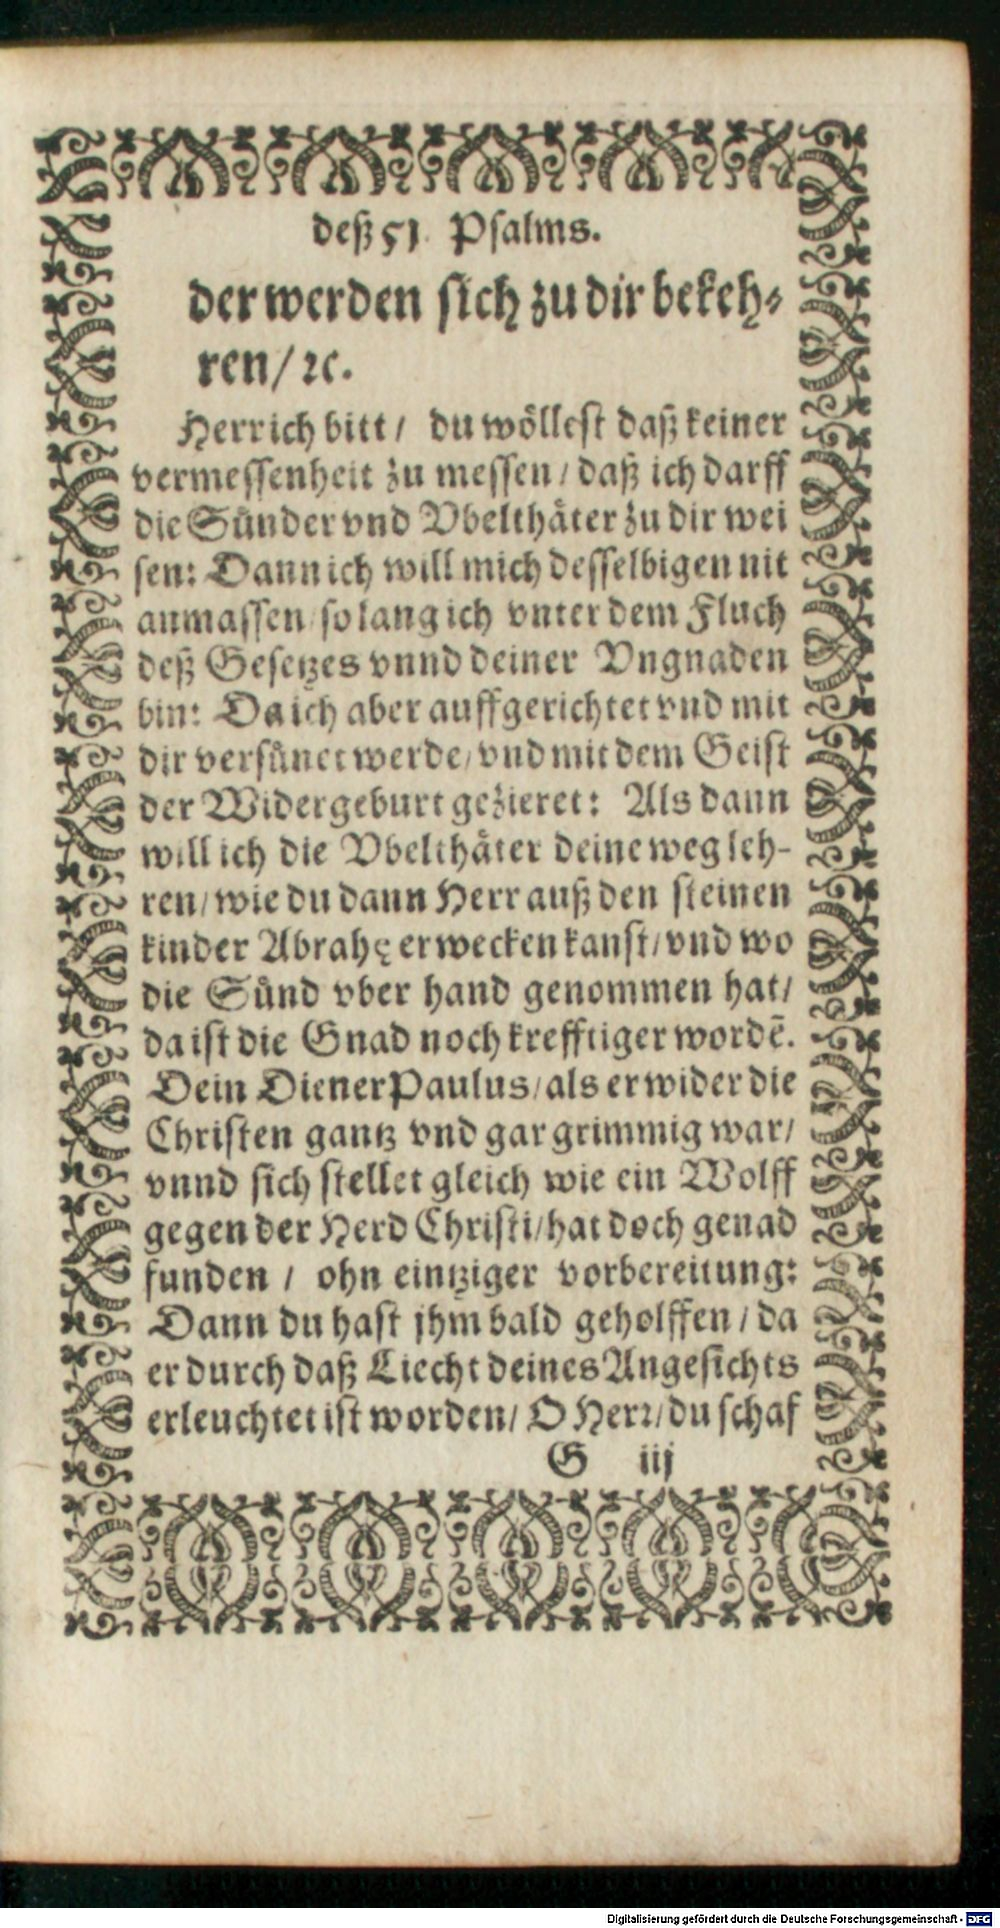 deß 51. Psalms.
der werden sich zu dir bekeh⸗
ren/ ꝛc.
Herr ich bitt/ du wöllest daß keiner
vermessenheit zu messen/ daß ich darff
die Sünder vnd Vbelthäter zu dir wei
sen: Dann ich will mich desselbigen nit
anmassen/ so lang ich vnter dem Fluch
deß Gesetzes vnnd deiner Vngnaden
bin: Da ich aber auffgerichtet vnd mit
dir versünet werde/ vnd mit dem Geist
der Widergeburt gezieret: Als dann
will ich die Vbelthäter deine weg leh-
ren/ wie du dann Herr auß den steinen
kinder Abrahę erwecken kanst/ vnd wo
die Sünd vber hand genommen hat/
da ist die Gnad noch krefftiger wordē.
Dein Diener Paulus/ als er wider die
Christen gantz vnd gar grimmig war/
vnnd sich stellet gleich wie ein Wolff
gegen der Herd Christi/ hat doch genad
funden / ohn eintziger vorbereitung:
Dann du hast jhm bald geholffen / da
er durch daß Liecht deines Angesichts
erleuchtet ist worden/ O Herr/ du schaf
G iij
Digitalisierung gefördert durch die Deutsche Forschungsgemeinschaft - DFG